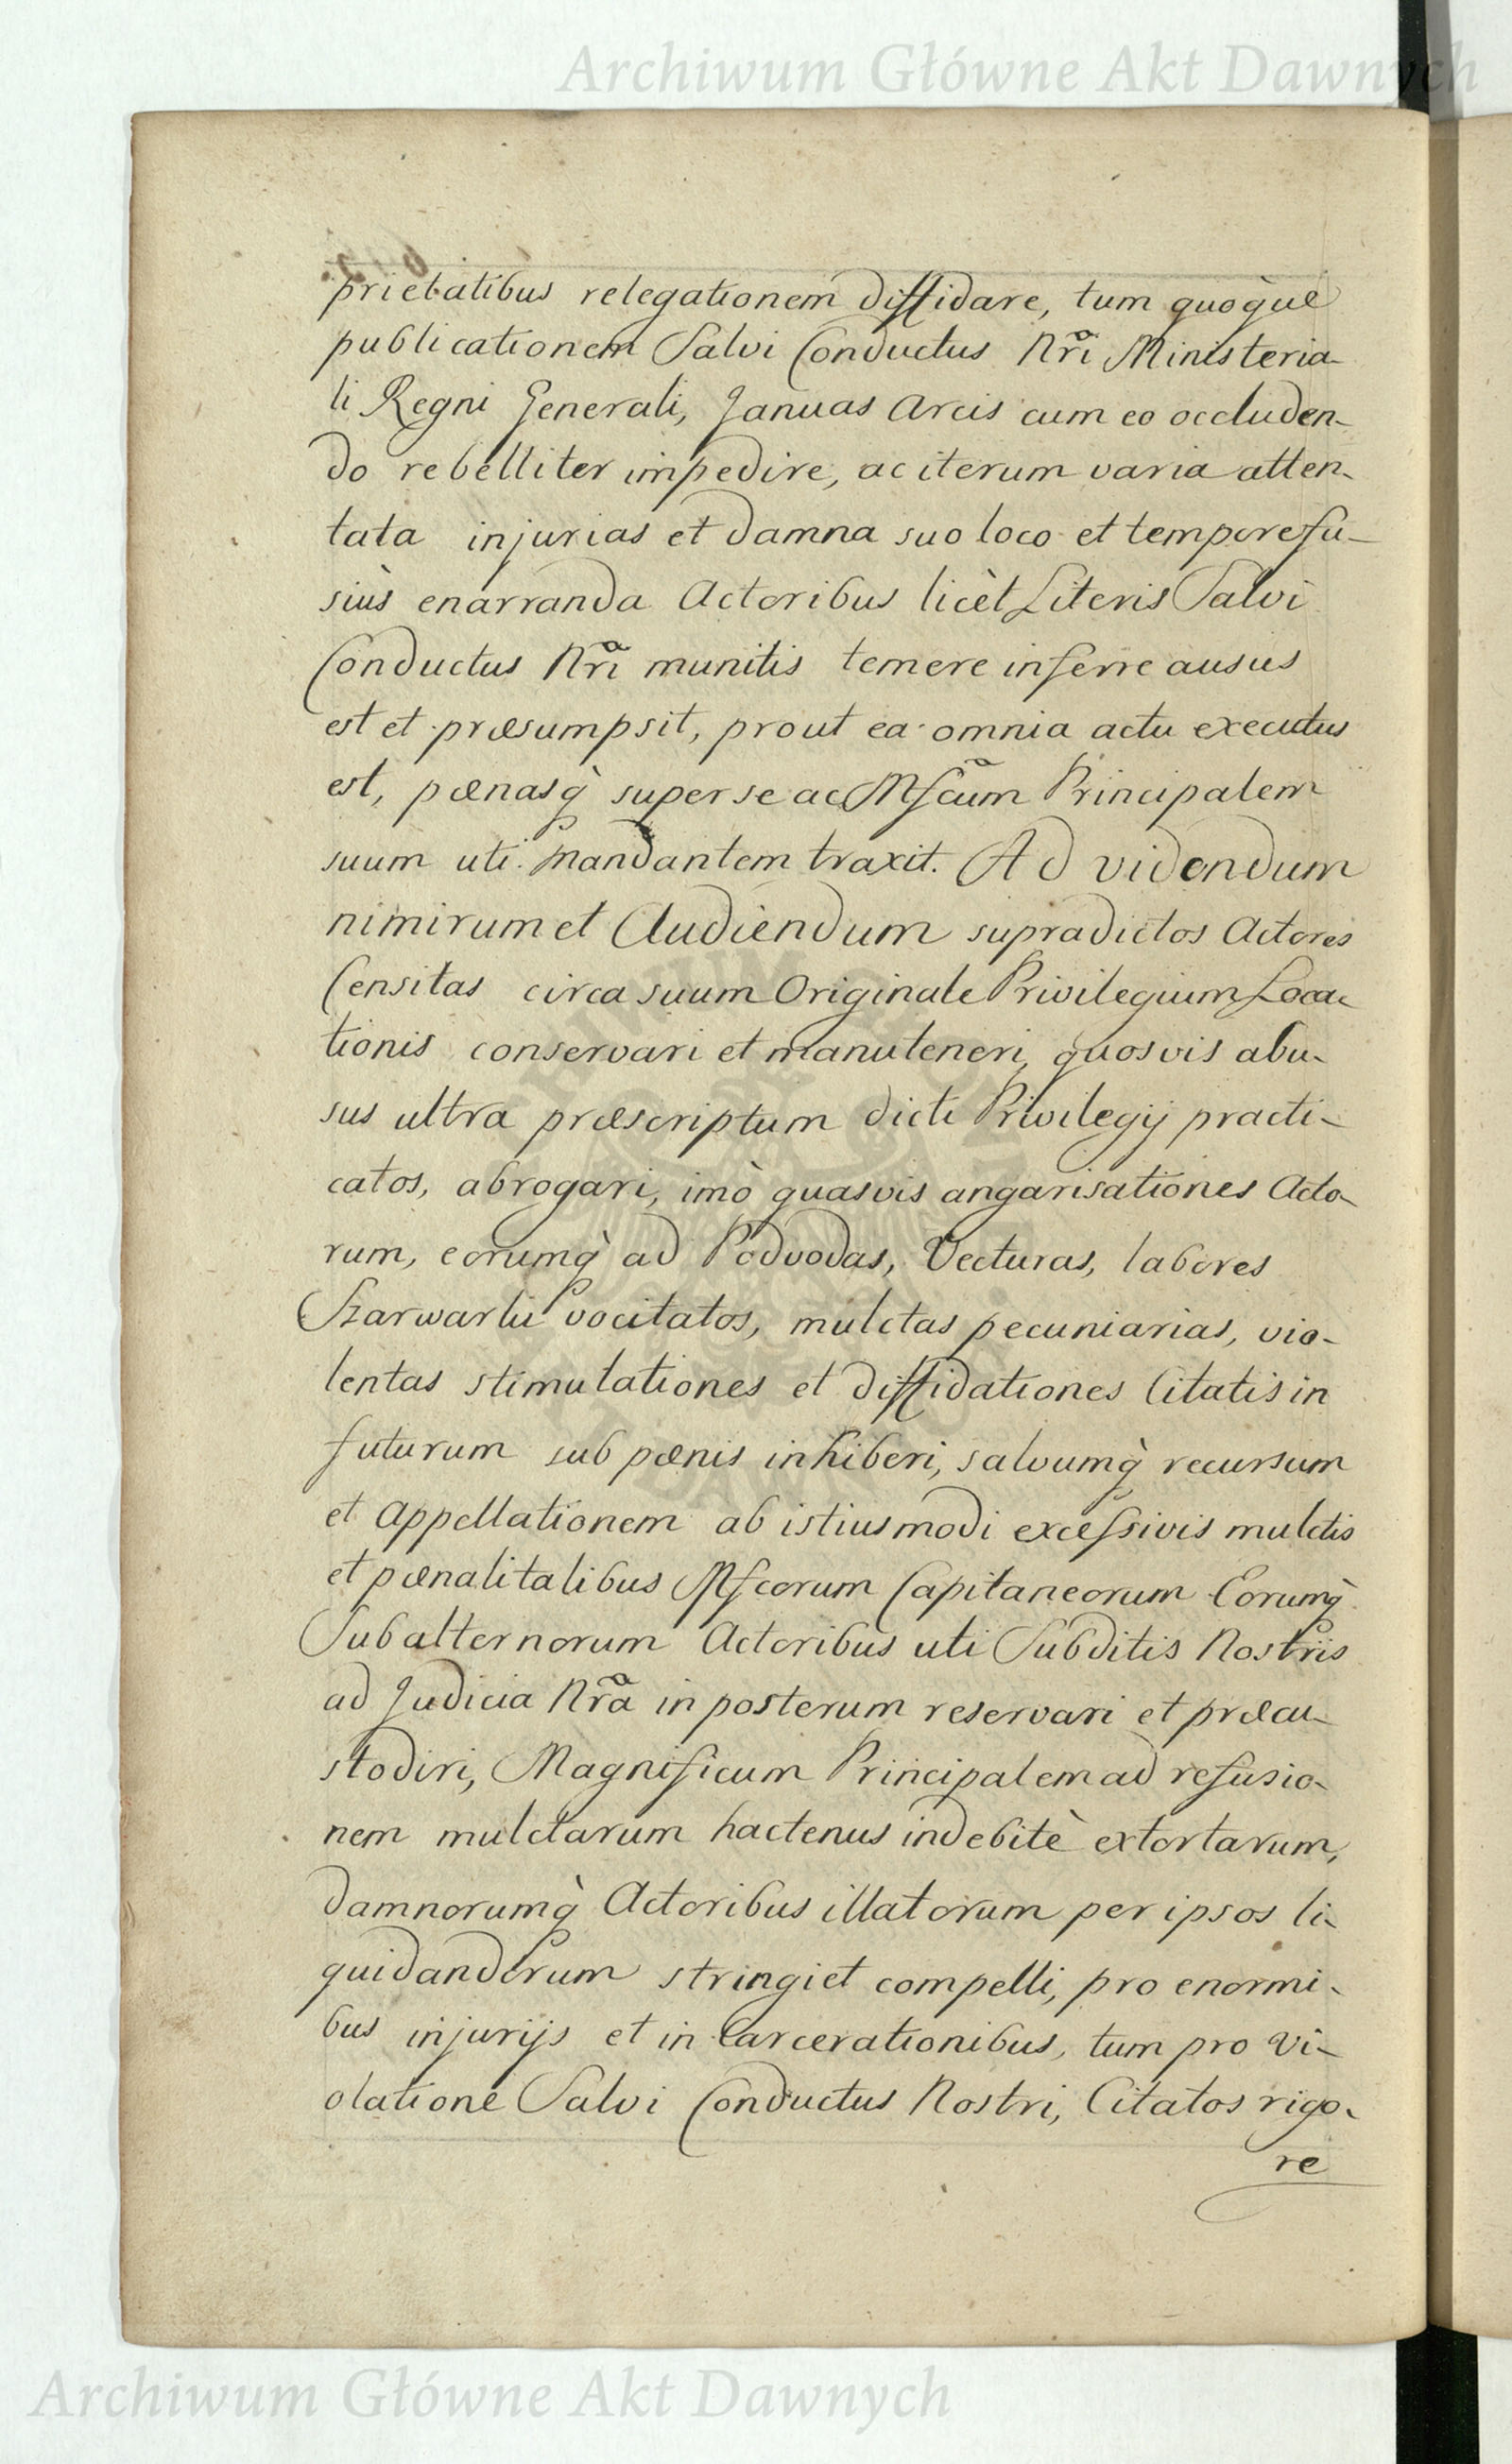 Archiwum Główne Akt Dawnych
prietatibus relegationem diffidare, tum quoque
publicationem Salvi Conductus Nr̃i Ministeria-
li Regni Generali, Januas Arcis cum eo occluden-
do rebelliter impedire, ac iterum varia atten-
tata injurias et damna suo loco et tempore fu-
siùs enarranda Actoribus licèt Literis Salvi
Conductus Nr̃i munitis temere inferre ausus
est et præsumpsit, prout ea omnia actu executus
est, pœnasq̀ super se ac Mfcũm Principalem
suum uti Mandantem traxit. Ad videndum
nimirum et Audiendum supradictos Actores
Censitas circa suum Originale Privilegium Loca-
tionis conservari et manuteneri, quosvis abu-
sus ultra præscriptum dicti Privilegij practi-
catos, abrogari, imò quasvis angarisationes Acto-
rum, eorumq̀ ad Podvodas, Vecturas, labores
Szarwarki vocitatos, mulctas pecuniarias, vio-
lentas stimulationes et diffidationes Citatis in
futurum sub pœnis inhiberi, salvumq̀ recursum
et Appellationem ab istiusmodi excessivis mulctis
et pœnalitatibus Mfcorum Capitaneorum Eorumq̀
Subalternorum Actoribus uti Subditis Nostris
ad Judicia Nr̃a in posterum reservari et præcu-
stodiri, Magnificum Principalem ad refusio-
nem mulctarum hactenus indebitè extortarum,
damnorumq̀ Actoribus illatorum per ipsos li-
quidandorum stringi et compelli, pro enormi-
bus injurijs et in Carcerationibus, tum pro Vi-
olatione Salvi Conductus Nostri, Citatos rigo-
re
Archiwum Główne Akt Dawnych